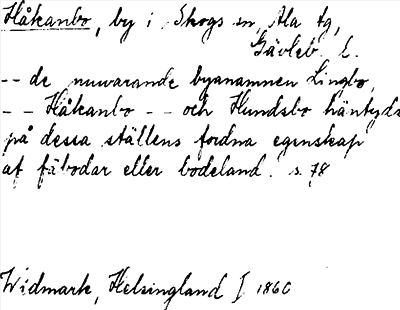 Håkanbo, by i Skogs sn, Ala tg,
Gävleb. l.
-- de nuvarande byanamnen Lingbo,
-- Håkanbo -- och Hundsbo häntyda
på dessa ställens fordna egenskap
af fäbodar eller bodeland. s. 78
Widmark, Helsingland I 1860